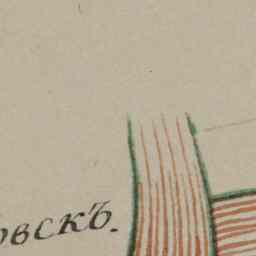 овскъ.